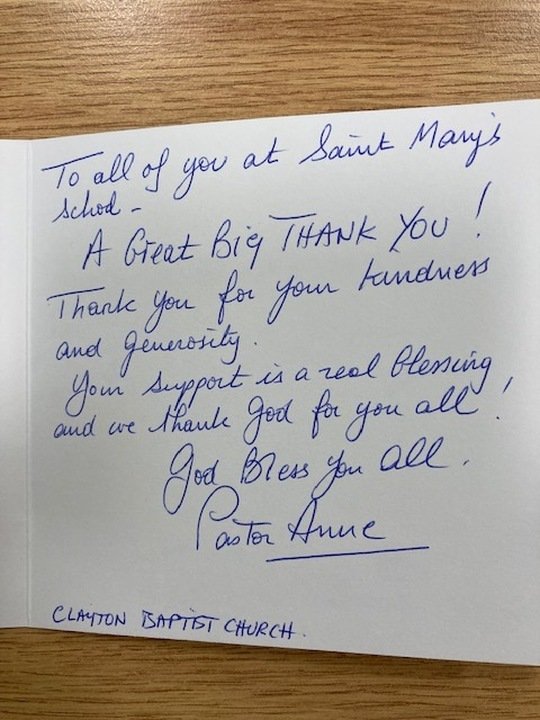 To all of you at Saint Mary's
School -
A Great Big THANK YOU!
Thank you for your kindness
and generosity.
Your support is a real blessing
and we thank God for you all!
God Bless you all.
Pastor Anne
CLAYTON BAPTIST CHURCH.